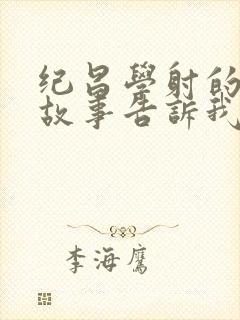 紀昌學射的
故事告訴我
李海鷹